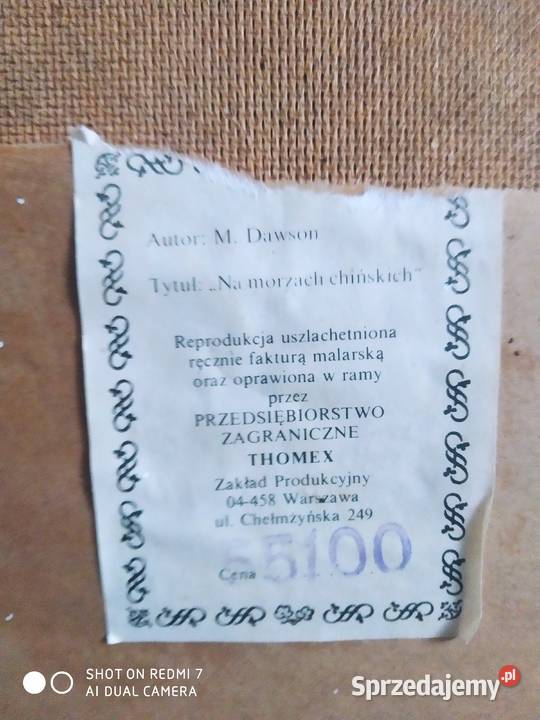 Autor: M. Dawson
Tytuł: „Na morzach chińskich"
Reprodukcja uszlachetniona
ręcznie fakturą malarską
oraz oprawiona w ramy
przez
PRZEDSIĘBIORSTWO
ZAGRANICZNE
THOMEX
Zakład Produkcyjny
04-458 Warszawa
ul. Chełmżyńska 249
Cena 55100
SHOT ON REDMI 7
AI DUAL CAMERA
Sprzedajemy.pl